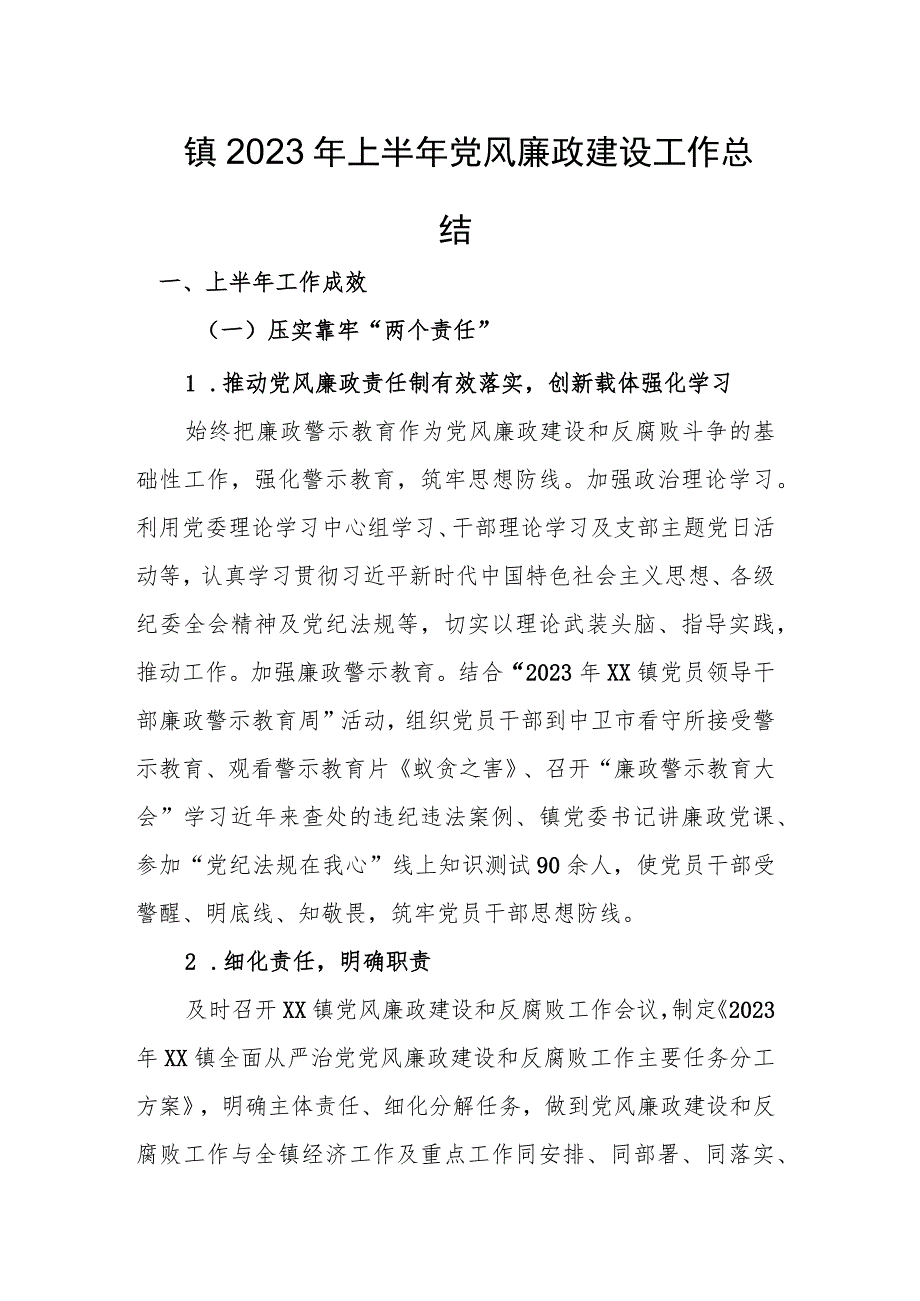 镇2023年上半年党风廉政建设工作总
结
一、上半年工作成效
（一）压实靠牢“两个责任”
1 .推动党风廉政责任制有效落实，创新载体强化学习
始终把廉政警示教育作为党风廉政建设和反腐败斗争的基
础性工作，强化警示教育，筑牢思想防线。加强政治理论学习。
利用党委理论学习中心组学习、干部理论学习及支部主题党日活
动等，认真学习贯彻习近平新时代中国特色社会主义思想、各级
纪委全会精神及党纪法规等，切实以理论武装头脑、指导实践，
推动工作。加强廉政警示教育。结合“2023年XX镇党员领导干
部廉政警示教育周”活动，组织党员干部到中卫市看守所接受警
示教育、观看警示教育片《蚁贪之害》、召开“廉政警示教育大
会”学习近年来查处的违纪违法案例、镇党委书记讲廉政党课、
参加“党纪法规在我心”线上知识测试90余人，使党员干部受
警醒、明底线、知敬畏，筑牢党员干部思想防线。
2 .细化责任，明确职责
及时召开XX镇党风廉政建设和反腐败工作会议，制定《2023
年XX镇全面从严治党党风廉政建设和反腐败工作主要任务分工
方案》，明确主体责任、细化分解任务，做到党风廉政建设和反
腐败工作与全镇经济工作及重点工作同安排、同部署、同落实、